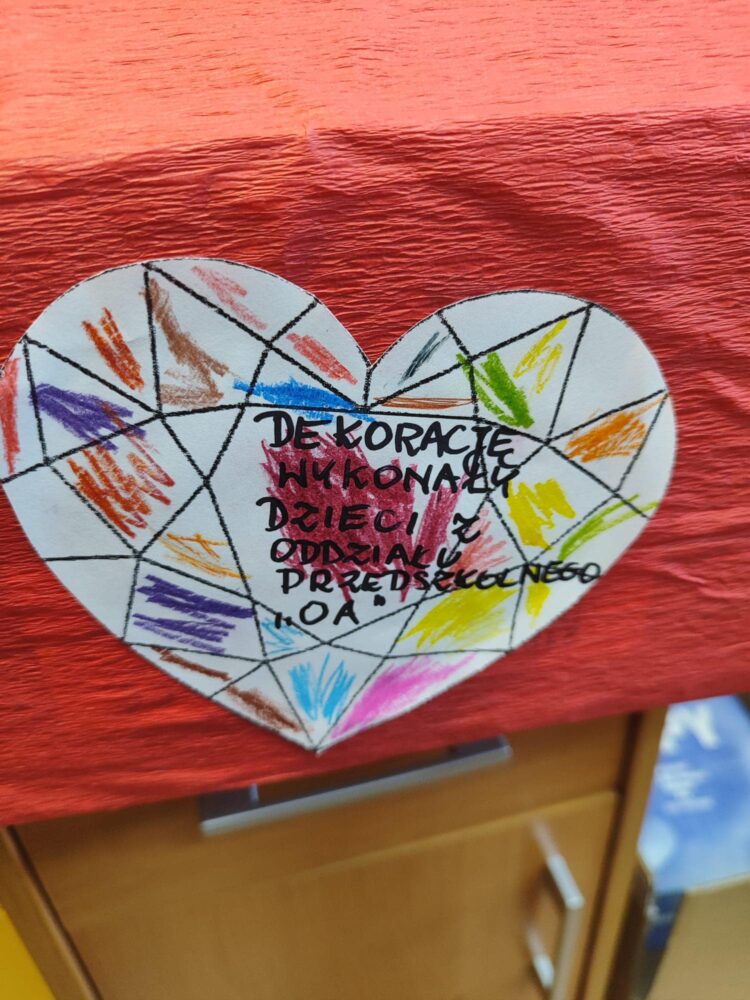 DEKORACJĘ
WYKONAŁY
DZIECI Z
ODDZIAŁU
PRZEDSZKOLNEGO
„OA"